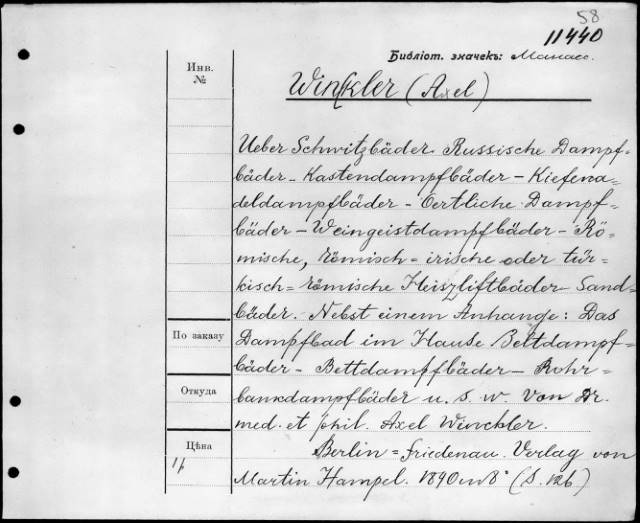 58
11440
Библіот. значекъ: Манас.
Инв.
№
Winkler (Axel)
Ueber Schwitzbäder Russische Dampf-
bäder - Kastendampfbäder - Kiefena=
deldampfbäder - Oertliche Dampf-
bäder - Weingeistdampfbäder - Rö-
mische, römisch-irische oder tür-
kisch=römische Heiszliftbäder Sand=
bäder. Nebst einem Anhange: Das
По заказу
Dampfbad im Hause Bettdampf=
bäder - Bettdampfbäder - Rohr-
Откуда
bankdampfbäder u. s. w. Von Dr.
med. et phil. Axel Winckler.
Цѣна
Berlin=Friedenau. Verlag von
Martin Hampel. 1890 in 8° (S. 126)